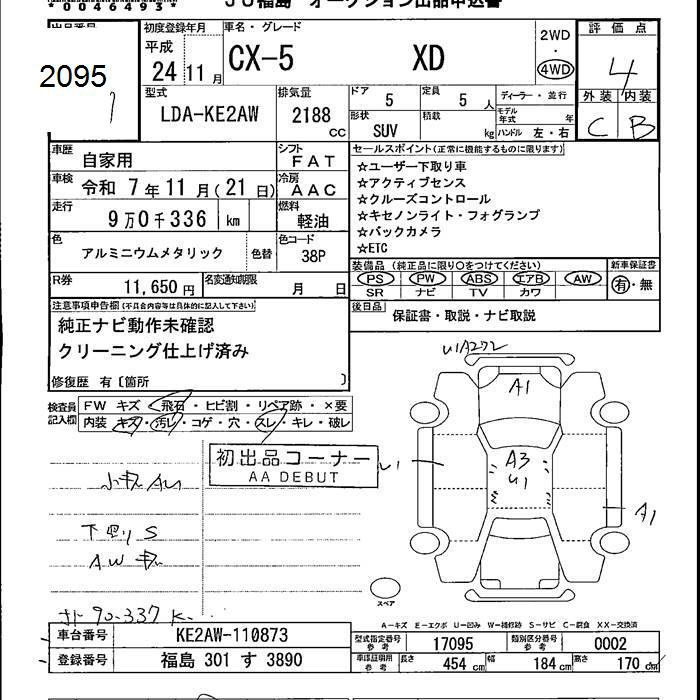 *0046493*
JU福島 オークション出品申込書
出品番号
2095
初度登録年月
平成
24 11月
車名・グレード
CX-5 XD
2WD
・
4WD
評価点
4
外装 内装
C B
型式
LDA-KE2AW
排気量
2188 CC
ドア
5
定員
5 人
ディーラー・並行
形状
SUV
積載
kg
モデル年式 年
ハンドル 左・右
車歴
自家用
シフト
FAT
車検
令和 7年11月(21日)
冷房
AAC
走行
9万0千336 km
燃料
軽油
色
アルミニウムメタリック
色替
色コード
38P
R券
11,650円
名変通知期限
月 日
セールスポイント(正常に機能するものに限ります)
☆ユーザー下取り車
☆アクティブセンス
☆クルーズコントロール
☆キセノンライト・フォグランプ
☆バックカメラ
☆ETC
装備品(純正品に限り○をつけてください)
PS PW ABS エアB AW
SR ナビ TV カワ
新車保証書
有・無
後日品
保証書・取説・ナビ取説
注意事項申告欄(不具合内容等は具体的に記入して下さい)
純正ナビ動作未確認
クリーニング仕上げ済み
修復歴 有〔箇所 〕
検査員記入欄
FW キズ・飛石・ヒビ割・リペア跡・×要
内装 キズ・汚レ・コゲ・穴・スレ・キレ・破レ
初出品コーナー
AA DEBUT
小キズAU
下廻りS
AWキズ
U1A2
A1
A3
U1
U1
A1
スペア
A-キズ E-エクボ U-凹み W-補修跡 S-サビ C-腐食 XX-交換済
車台番号
KE2AW-110873
登録番号
福島 301 す 3890
型式指定番号
参考
17095
類別区分番号
参考
0002
車庫証明用
参考
長さ
454 cm
幅
184 cm
高さ
170 cm